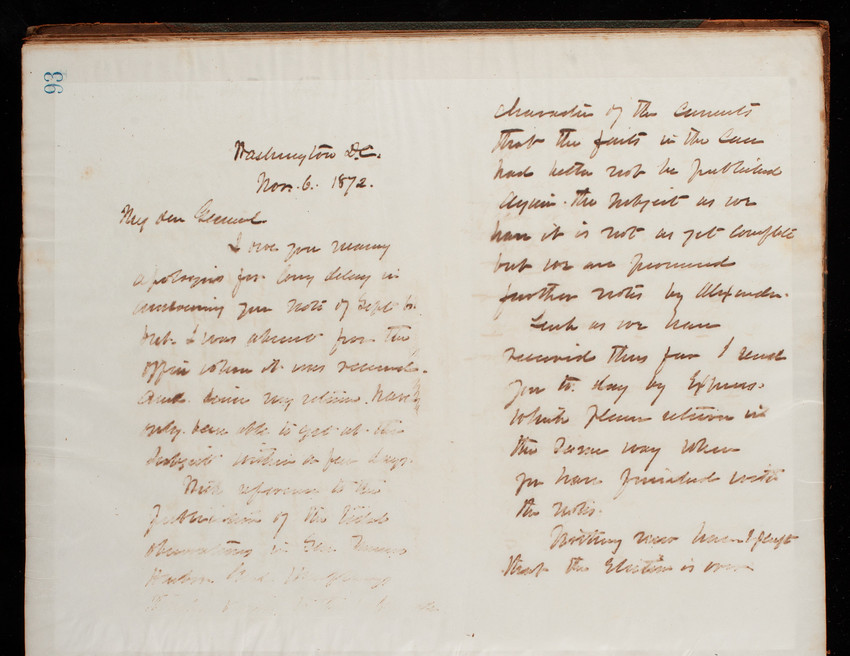 93
Washington D.C.
Nov. 6. 1872.
My dear General
I owe you many
apologies for long delay in
answering your note of Sept 6.
but I was absent from the
office when it was received.
and since my return have
only been able to get at the
subject within a few days.
With reference to the
publication of the tidal
observations in San
Harbor
character of the currents
that the facts in the case
had better not be published
again. The subject as we
have it is not as yet complete
but we are promised
further notes by Alexander.
Such as we have
received thus far I send
you to day by Express.
Which please return in
the same way when
you have finished with
the notes.
Nothing new here except
that the Election is over